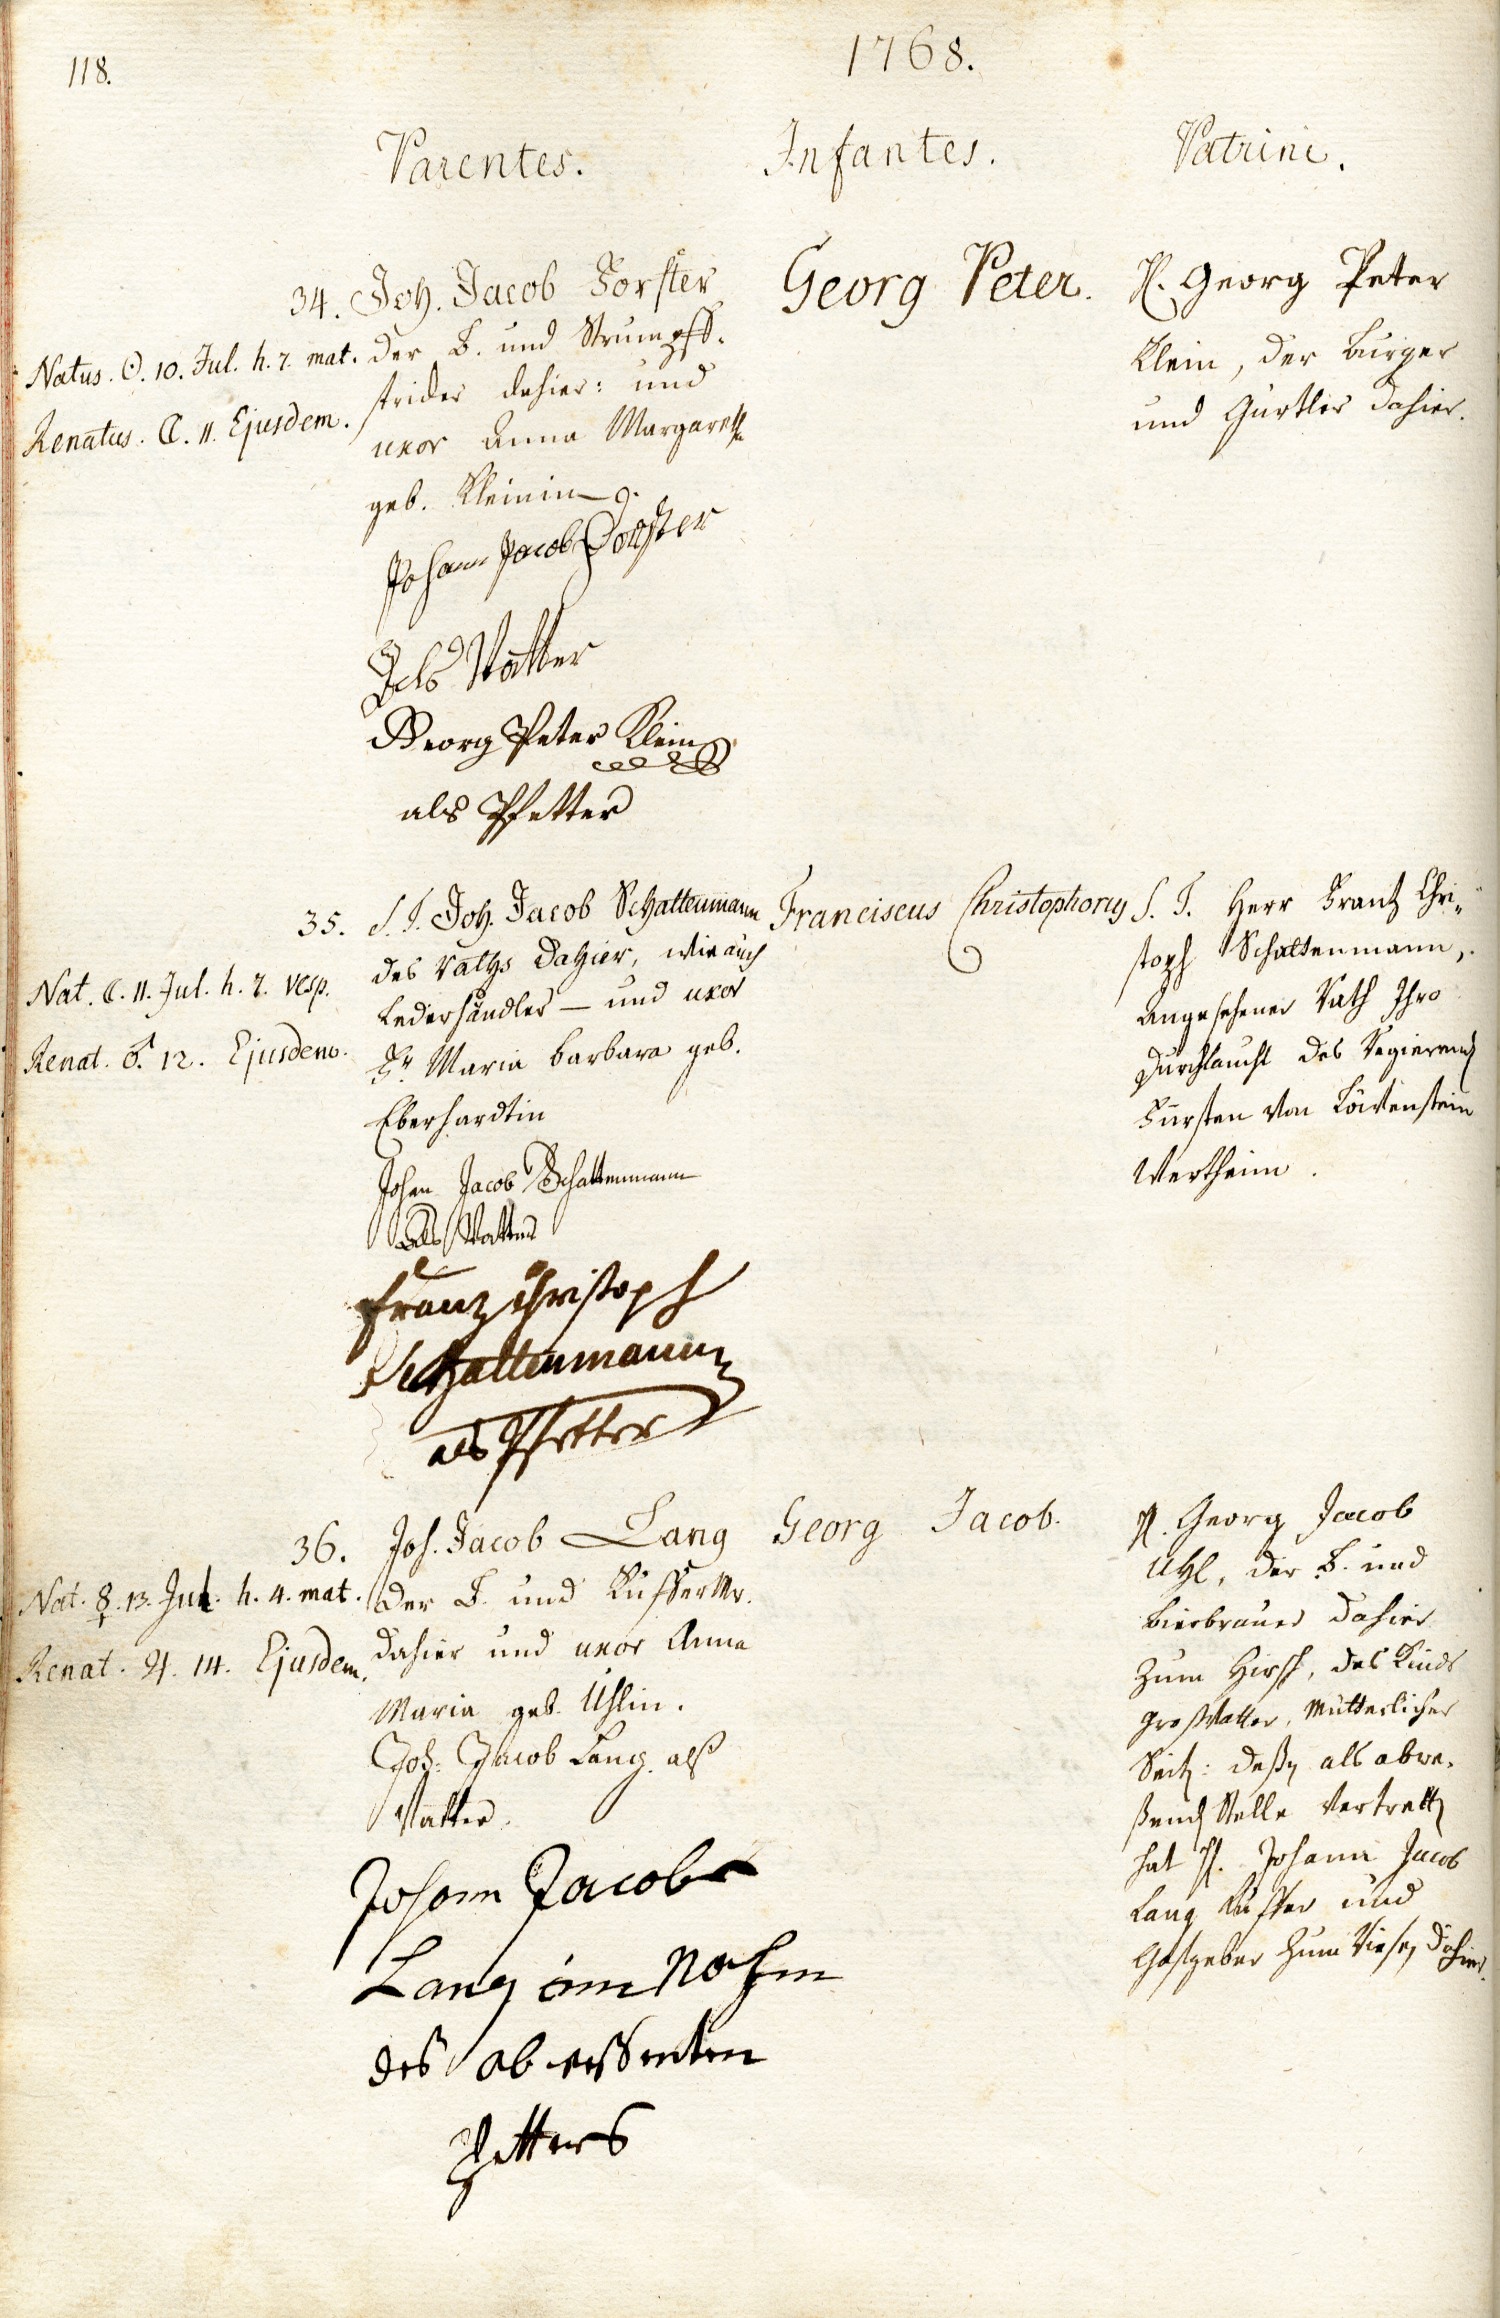 118.
1768.
Parentes.
Infantes.
Patrini.
34.
Natus. ☉. 10. Jul. h. 7. mat.
Renatus. ☾. 11. Ejusdem.
Joh. Jacob Forster
der B. und Strumpff-
strider dahier: und
uxor Anna Margareth
geb. Kleinin
Johann Jacob Forster
Als Vatter
Georg Peter Klein
als Pfetter
Georg Peter.
H. Georg Peter
Klein, der Burger
und Gürtler dahier.
35.
Nat. ☾. 11. Jul. h. 7. vesp.
Renat. ♂. 12. Ejusdem.
S. T. Joh. Jacob Schattenmann
des Raths dahier, wie auch
Lederhändler — und uxor
Fr. Maria Barbara geb.
Eberhardtin
Johan Jacob Schattenmann
Als Vatter
Franz Christoph
Schattenmann
als Pfetter
Franciscus Christophorus
S. T. Herr Frantz Chri-
stoph Schattenmann,
Angesehener Rath Ihro
Durchlaucht des Regierend
Fürsten von Löwenstein
Wertheim.
36.
Nat. ☿. 13. Jul. h. 4. mat.
Renat. ♃. 14. Ejusdem.
Joh. Jacob Lang
der B. und Küffer Mr.
dahier und uxor Anna
Maria geb. Uhlin.
Joh. Jacob Lang als
Vatter.
Johann Jacob
Lang im Nahm
des abwessenten
Petters
Georg Jacob.
H. Georg Jacob
Uhl, der B. und
Bierbrauer dahier
zum Hirsch, des Kinds
Großvatter, Mütterlicher
Seite: deßen als abwe-
ßend Stelle vertretten
hat H. Johann Jacob
Lang Küffer und
Gastgeber zum Riesen dahier.